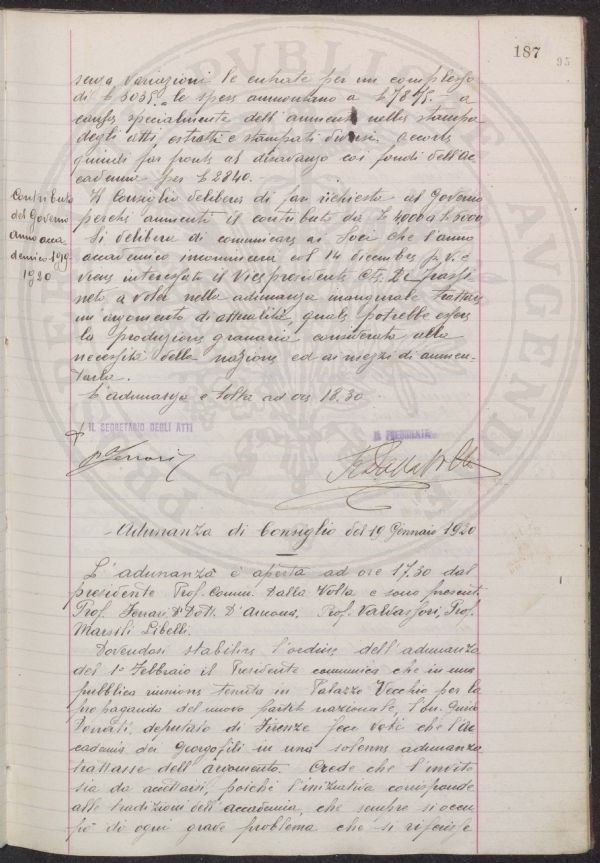 187
95
senza variazioni le entrate per un complesso
di £ 5035. le spese ammontano a £ 7875. a
causa specialmente dell'aumento nella stampa
degli atti, estratti e stampati diversi.
quindi far fronte al disavanzo coi fondi dell'Ac
cademia per £ 2840.
Contributo
del Governo
anno acca
demico 1919-
1920
Il Consiglio delibera di far richiesta al Governo
perchè aumenti il contributo da £ 4000 a £
Si delibera di comunicare ai Soci che l'anno
accademico incomincerà col 14 dicembre p.v. e
viene interessato il Vicepresidente
a voler nella adunanza inaugurale trattare
un argomento di attualità, quale potrebbe essere
la produzione granaria considerata alla
necessità della nazione ed ai mezzi di aumen-
tarla.
L'adunanza è sciolta ad ore 18.30
IL SEGRETARIO DEGLI ATTI
IL PRESIDENTE
Ferrari
Dalla Volta
Adunanza di Consiglio del 19 Gennaio 1920
L'adunanza è aperta ad ore 17.30 dal
presidente Prof. Comm. Dalla Volta e sono presenti
Prof. Ferrari, Dott. D'Ancona, Prof. Valvassori, Prof.
Marsili Libelli.
Dovendosi stabilire l'ordine dell'adunanza
del 1° Febbraio il Presidente comunica che in una
pubblica riunione tenuta in Palazzo Vecchio per la
propaganda del nuovo partito nazionale, l'on. Guido
Donati, deputato di Firenze fece voti che l'Ac
cademia dei Georgofili in una solenne adunanza
trattasse dell'argomento. Crede che l'invito
sia da accettarsi, poichè l'iniziativa corrisponde
alle tradizioni dell'accademia, che sempre si occu
pò di ogni grave problema che si riferisse